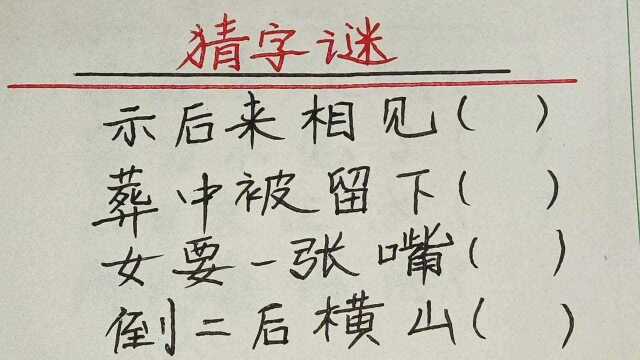 猜字谜
示后来相见( )
葬中被留下( )
女要一张嘴( )
倒二后横山( )